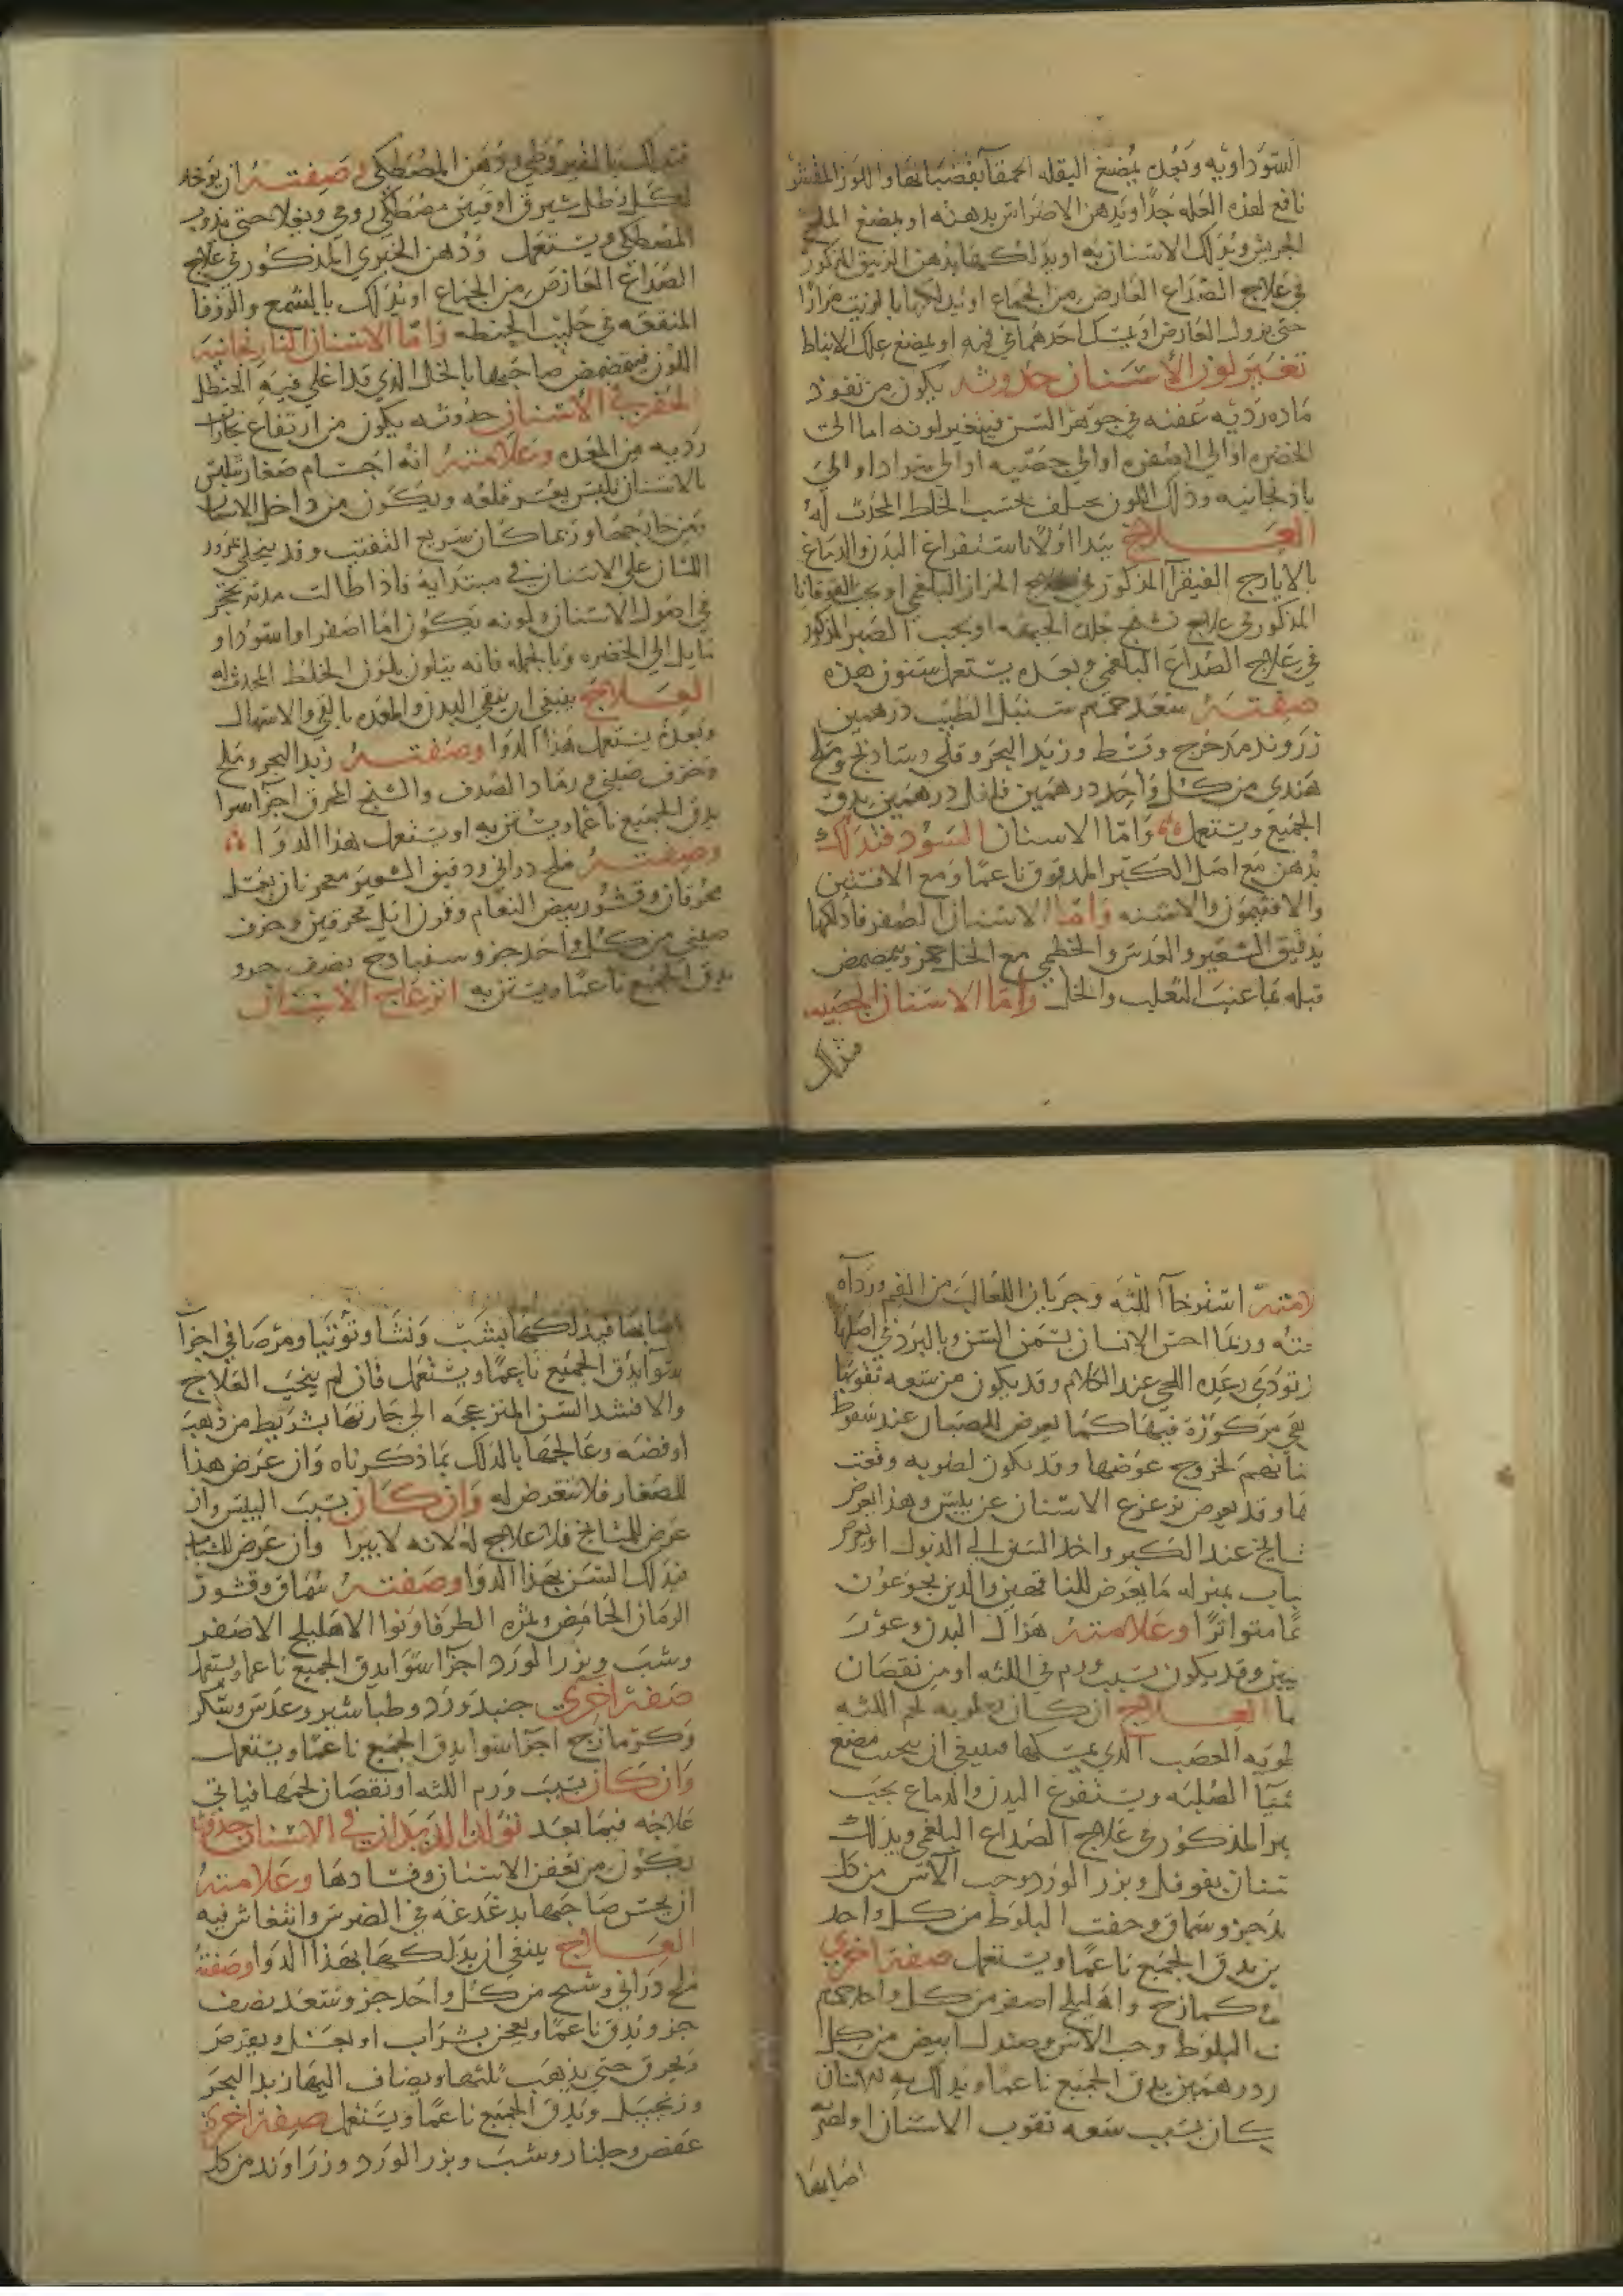 السوداويه وبعده يمضغ البقله الحمقا بقضبانها واللوز المقشر
نافع لهذه العله جدا ويدهن الاضراس بدهنه او يمضغ الملح
الجريش ويدلك الاسنان به او يدلكها بدهن الزنبق المذكور
في علاج الصداع العارض من الجماع او يدلكها بالزيت مرارا
حتى يزول العارض او يمسك احدهما في فيه او يمضغ علك الانباط
تغير لون الأسنان حدوثه يكون من نفوذ
ماده رديه عفنه في جوهر السن فيتغير لونه اما الى
الخضره او الى الصفره او الى جصيه او الى سواد او الى
باذنجانيه وذلك اللون يختلف بحسب الخلط المحدث له
العلاج يبدا اولا باستفراغ البدن والدماغ
بالايارج الفيقرا المذكور في علاج الحزاز البلغمي او بحب القوقايا
المذكور في علاج تشنج جلد الجبهه او بحب الصبر المذكور
في علاج الصداع البلغمي وبعده يستعمل سنون هذه
صفته سعد حمم سنبل الطيب درهمين
زروند مدحرج وقسط وزبد البحر وقلي وساذج وملح
هندي من كل واحد درهمين فلفل درهمين يدق
الجميع ويستعمل واما الاسنان السود فتدلك
بدهن مع اصل الكبر المدقوق ناعما ومع الافسنتين
والافتيمون والاشنه واما الاسنان الصفر فادلكها
بدقيق الشعير والعدس والخطمي مع الخل وتمضمض
قبله بما عنب الثعلب والخل واما الاسنان الجصيه
فتدلك
فتدلك بالقيروطي ودهن المصطكي وصفته ان يوخذ
لكل رطل شيرق اوقيتين مصطكي رومي ويغلا حتى يذوب
المصطكي ويستعمل ودهن الخيري المذكور في علاج
الصداع العارض من الجماع او يدلك بالشمع والزوفا
المنقعه في حليب الحنطه واما الاسنان الباذنجانيه
اللون فيتمضمض صاحبها بالخل الذي قد اغلي فيه الحنظل
الحفر في الاسنان حدوثه يكون من ارتفاع بخارات
رديه من المعده وعلامته انه اجسام صغار تلبس
بالاسنان تلبس يعسر قلعه ويكون من داخل الاسنان
ومن خارجها وربما كان سريع التفتت وقد ينجلي بمرور
اللسان على الاسنان في مبتدايه فاذا طالت مدته تحجر
في اصول الاسنان ولونه يكون اما اصفر او اسود او
مايل الى الخضره وبالجمله فانه يتلون بلون الخلط المحدث له
العلاج ينبغي ان ينقي البدن والمعده بالقي والاسهال
وبعده يستعمل هذا الدوا وصفته زبد البحر وملح
وخزف صيني ورماد الصدف والشيح المحرق اجزا سوا
يدق الجميع ناعما ويستن به او يستعمل هذا الدوا
وصفته ملح دراني ودقيق الشعير معجونان بعسل
محرقان وقشور بيض النعام وقرن ايل محرقين وخزف
صيني من كل واحد جزو سنباذج نصف جزو
يدق الجميع ناعما ويستن به انزعاج الاسنان
لامته استرخا اللثه وجريان اللعاب من الفم ورداه
ورما احس الانسان بسمن السن وبالبرد في اصلها
اللحي عند الكلام وقد يكون من سعه ثقوبها
مركوزه فيها كما يعرض للصبيان عند سقوط
لخروج عوضها وقد يكون لرطوبه وقعت
وقد يعرض تزعزع الاسنان عن يبس وهذا يعرض
شايخ عند الكبر واخذ السن الى الذبول او يعرض
باب بمنزله ما يعرض للناقهين والذين يجوعون
متواترا وعلامته هزال البدن وغور
ينين وقد يكون بسبب ورم في اللثه او من نقصان
ها العلاج ان كان لرطوبه لحم اللثه
طوبه العصب الذي يمسكها فينبغي ان يجتنب مضغ
شيا الصلبه ويستفرغ البدن والدماغ بحب
بر المذكور في علاج الصداع البلغمي ويدلك
سنان بفوفل وبزر الورد وحب الاس من كل
حد جزو سماق وجفت البلوط من كل واحد
ين يدق الجميع ناعما ويستعمل صفه اخرى
كمازج واهليلج اصفر من كل واحد
ت البلوط وحب الاس وصندل ابيض من كل
د درهمين يدق الجميع ناعما ويدلك به الاسنان
كان بسبب سعه ثقوب الاسنان او لضر
اصابها
اصابها فيدلكها بشب ونشا وتوتيا ومرصافي اجزا
سوا يدق الجميع ناعما ويستعمل فان لم ينجب العلاج
والا فشد السن المنزعجه الى جارتها بشريط من ذهب
او فضه وعالجها بالدلك بما ذكرناه وان عرض هذا
للصغار فلا تتعرض له وان كان بسبب اليبس وان
عرض للمشايخ فلا علاج له لانه لا يبرا وان عرض للشباب
فيدلك السن بهذا الدوا وصفته سماق وقشور
الرمان الحامض وثمره الطرفا ونوا الاهليلج الاصفر
وشب وبزر الورد اجزا سوا يدق الجميع ناعما ويستعمل
صفه اخرى جنبد ورد وطباشير وعدس وسكر
وكزمازج اجزا سوا يدق الجميع ناعما ويستعمل
وان كان بسبب ورم اللثه او نقصان لحمها فياتي
علاجه فيما بعد تولد الديدان في الاسنان حدوثها
يكون من تعفن الاسنان وفسادها وعلامته
ان يحس صاحبها بدغدغه في الضرس وانتغاش فيه
العلاج ينبغي ان يدلكها بهذا الدوا وصفته
ملح دراني وشيح من كل واحد جزو سعد نصف
جزو يدق ناعما ويعجن بشراب او بعسل ويقرص
ويحرق حتى يذهب ثلثها ويضاف اليها زبد البحر
وزنجبيل ويدق الجميع ناعما ويستعمل صفه اخرى
عفص وجلنار وشب وبزر الورد وزراوند من كل